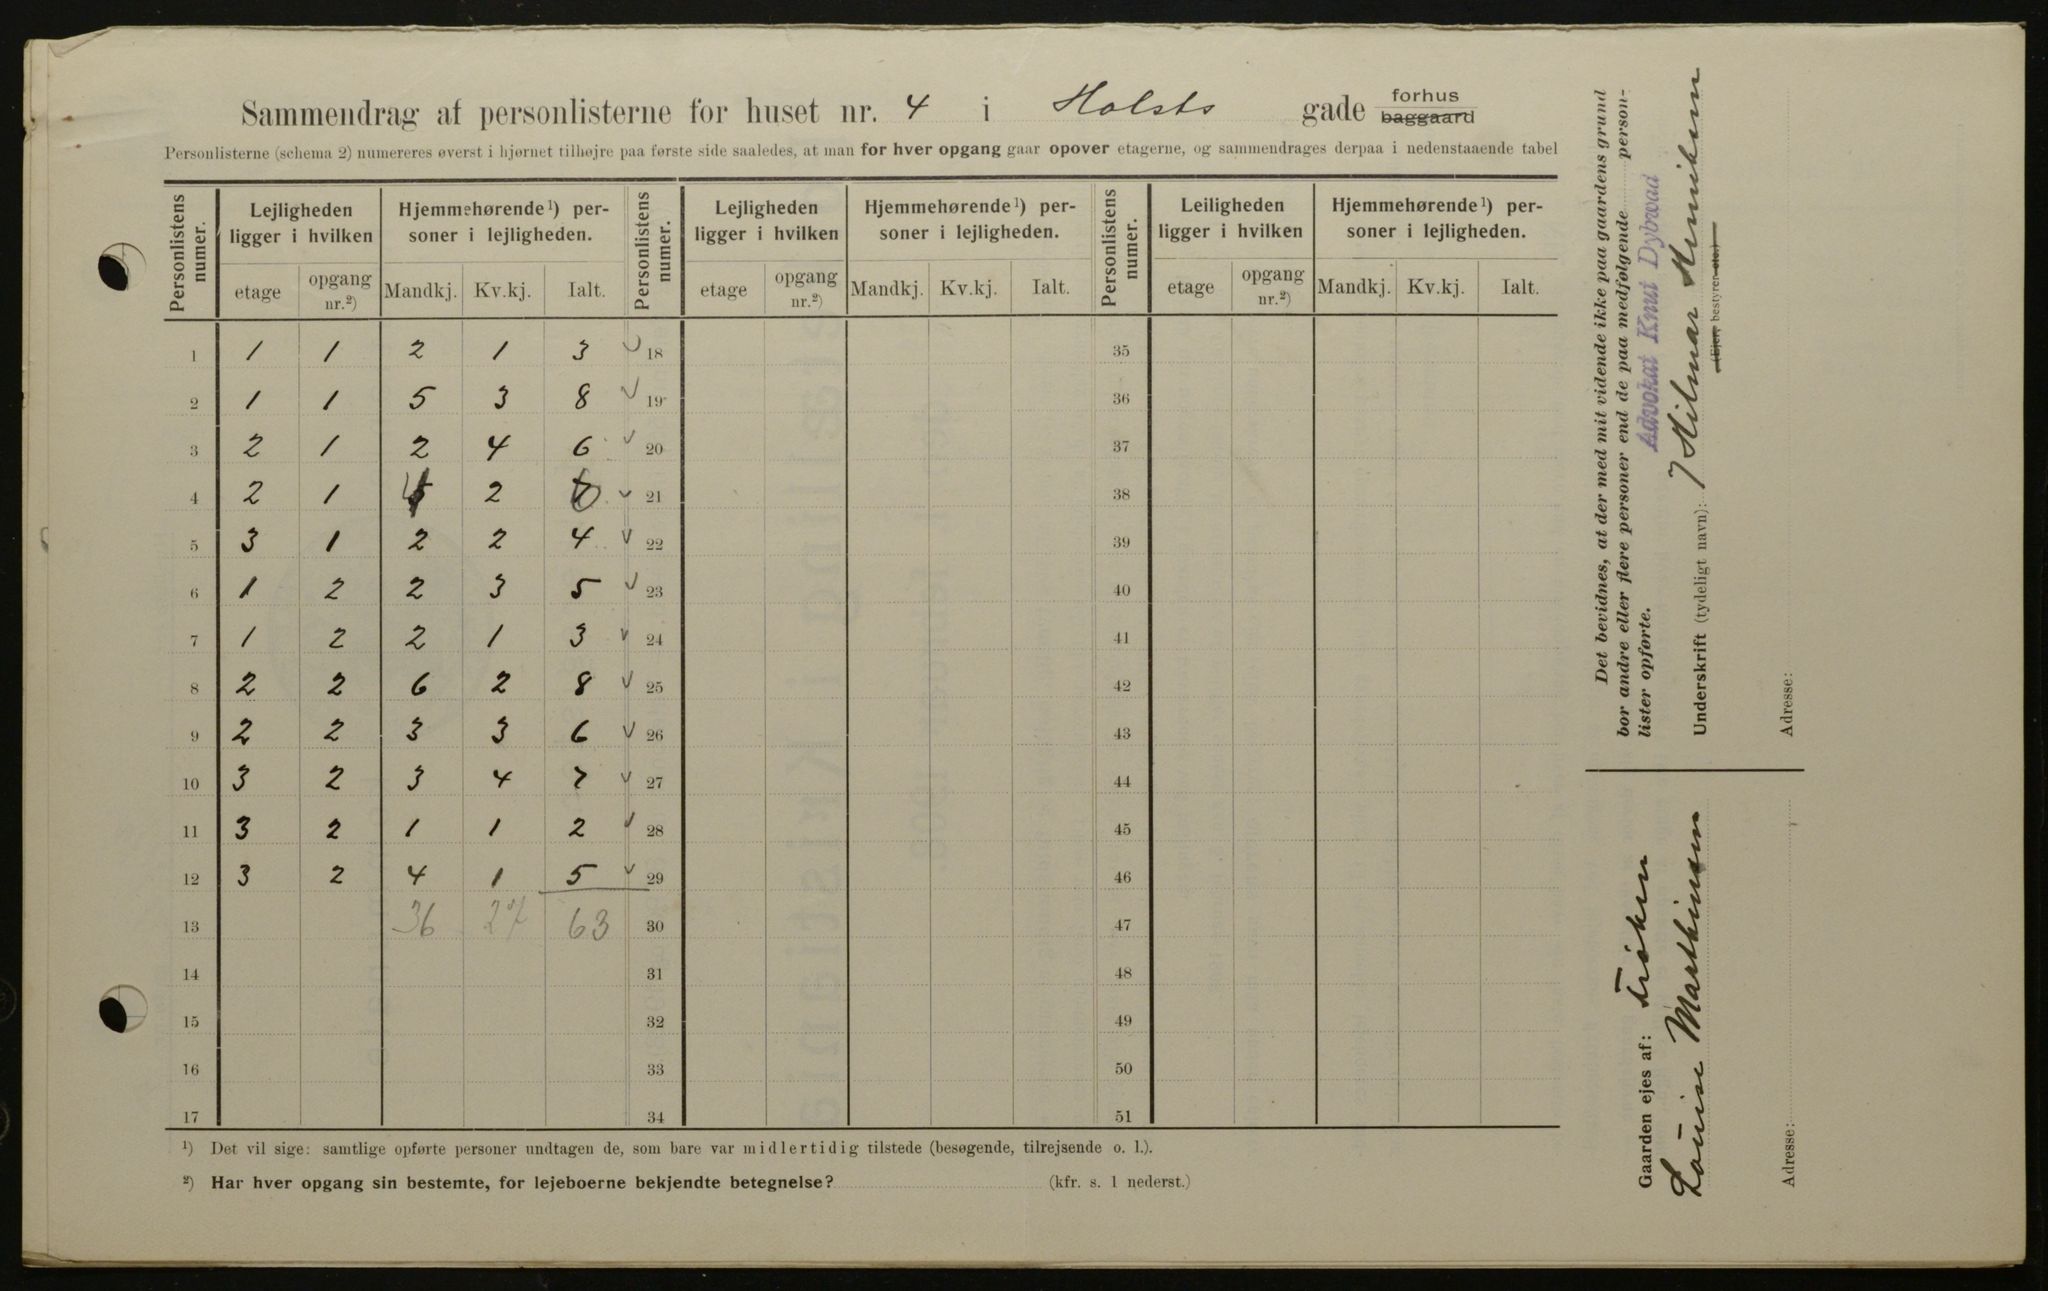 Sammendrag af personlisterne for huset nr. 4 i Holsts gade forhus baggaard
Personlisterne (schema 2) numereres øverst i hjørnet tilhøjre paa første side saaledes, at man for hver opgang gaar opover etagerne, og sammendrages derpaa i nedenstaaende tabel
Personlistens numer. Lejligheden ligger i hvilken Hjemmehørende ¹) personer i lejligheden. Personlistens numer. Lejligheden ligger i hvilken Hjemmehørende ¹) personer i lejligheden. Personlistens numer. Leiligheden ligger i hvilken Hjemmehørende ¹) personer i lejligheden.
etage opgang nr.²) Mandkj. Kv.kj. Ialt. etage opgang nr.²) Mandkj. Kv.kj. Ialt. etage opgang nr.²) Mandkj. Kv.kj. Ialt.
1 1 1 2 1 3 18 35
2 1 1 5 3 8 19 36
3 2 1 2 4 6 20 37
4 2 1 4 2 6 21 38
5 3 1 2 2 4 22 39
6 1 2 2 3 5 23 40
7 1 2 2 1 3 24 41
8 2 2 6 2 8 25 42
9 2 2 3 3 6 26 43
10 3 2 3 4 7 27 44
11 3 2 1 1 2 28 45
12 3 2 4 1 5 29 46
13 36 27 63 30 47
14 31 48
15 32 49
16 33 50
17 34 51
¹) Det vil sige: samtlige opførte personer undtagen de, som bare var midlertidig tilstede (besøgende, tilrejsende o. l.).
²) Har hver opgang sin bestemte, for lejeboerne bekjendte betegnelse? (kfr. s. 1 nederst.)
Det bevidnes, at der med mit vidende ikke paa gaardens grund
bor andre eller flere personer end de paa medfølgende personlister opførte.
Advokat Knut Dybwad
Underskrift (tydeligt navn): Hilmar Henriksen
(Ejer, bestyrer etc.)
Adresse:
Gaarden ejes af: Frøken
Louise Marthinsen
Adresse: